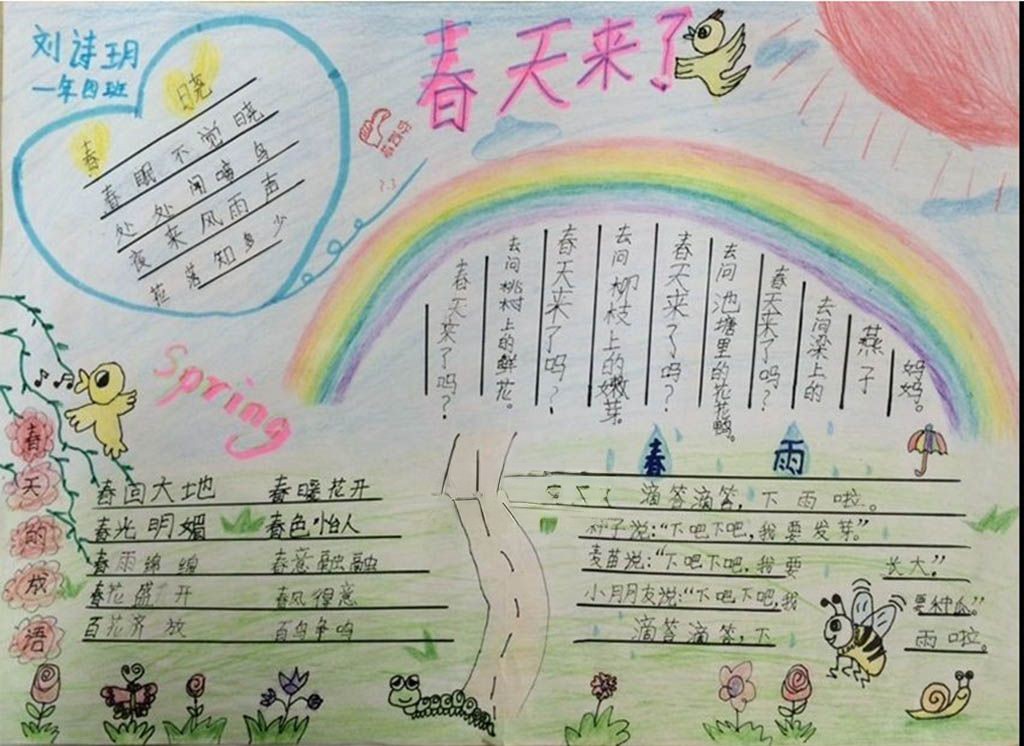 春天来了
刘诗玥
一年四班
春晓
春眠不觉晓
处处闻啼鸟
夜来风雨声
花落知多少
春天来了吗？
去问桃树上的鲜花。
春天来了吗？
去问柳枝上的嫩芽。
春天来了吗？
去问池塘里的花花鸭。
春天来了吗？
去问梁上的
燕子
妈妈。
Spring
春天的成语
春回大地 春暖花开
春光明媚 春色怡人
春雨绵绵 春意融融
春花盛开 春风得意
百花齐放 百鸟争鸣
春雨
滴答滴答，下雨啦。
种子说：“下吧下吧，我要发芽。”
麦苗说：“下吧下吧，我要长大。”
小朋友说：“下吧下吧，我要种瓜。”
滴答滴答，下雨啦。